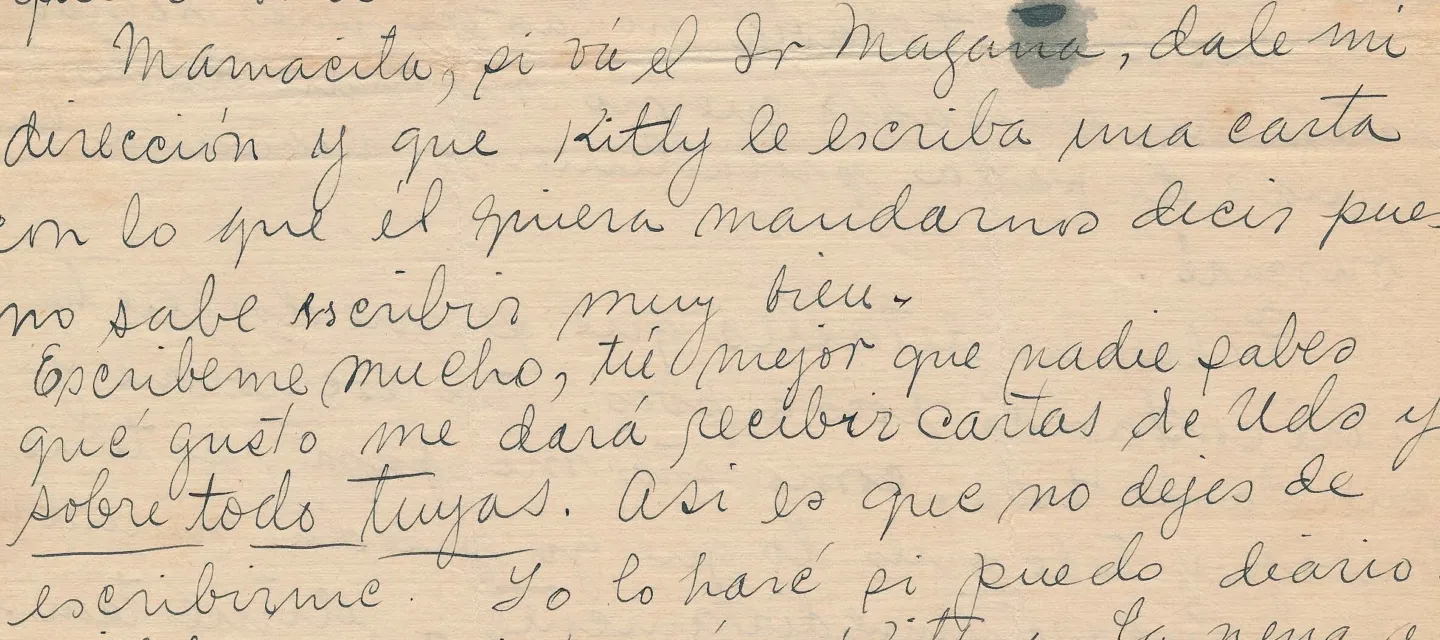 Mamacita, si vá el Sr Magana, dale mi
dirección y que Kitty le escriba una carta
con lo que él quiera mandarnos decir pues
no sabe escribir muy bien.
Escribeme mucho, tú mejor que nadie sabes
qué gusto me dará recibir cartas de Uds y
sobre todo tuyas. Asi es que no dejes de
escribirme. Yo lo haré si puedo diario.